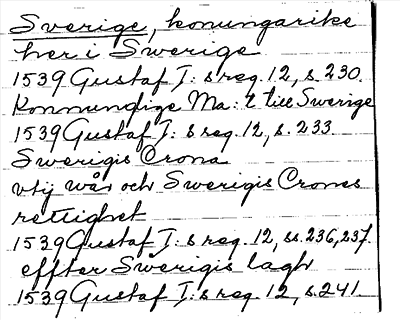 Sverige, konungarike
her i Swerige
1539 Gustaf I:s reg. 12, s. 230.
Konnundige Ma:t till Swerige
1539 Gustaf I:s reg. 12, s. 233.
Swerigis Crona
vtij wår och Swerigis Crones
rettighet
1539 Gustaf I:s reg. 12, ss. 236, 237.
effter Swerigis lagh
1539 Gustaf I:s reg. 12, s. 241.